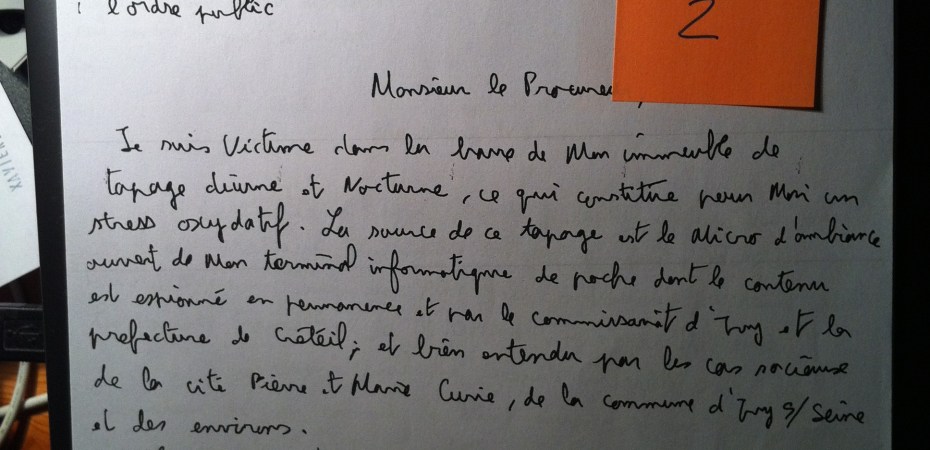 l'ordre public
2
Monsieur le Procureur,
Je suis Victime dans la barre de Mon immeuble de
tapage diurne et Nocturne, ce qui constitue pour Moi un
stress oxydatif. La source de ce tapage est le Micro d'ambiance
ouvert de Mon terminal informatique de poche dont le contenu
est espionné en permanence et par le commissariat d'Ivry et la
prefecture de Créteil; et bien entendu par les cas sociaux
de la cité Pierre et Marie Curie, de la commune d'Ivry s/ Seine
et des environs.
XAVIER